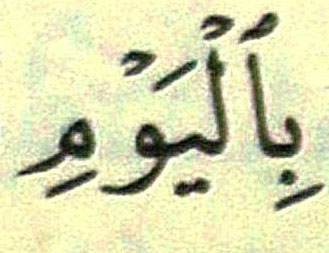 بِٱلْيَوْمِ